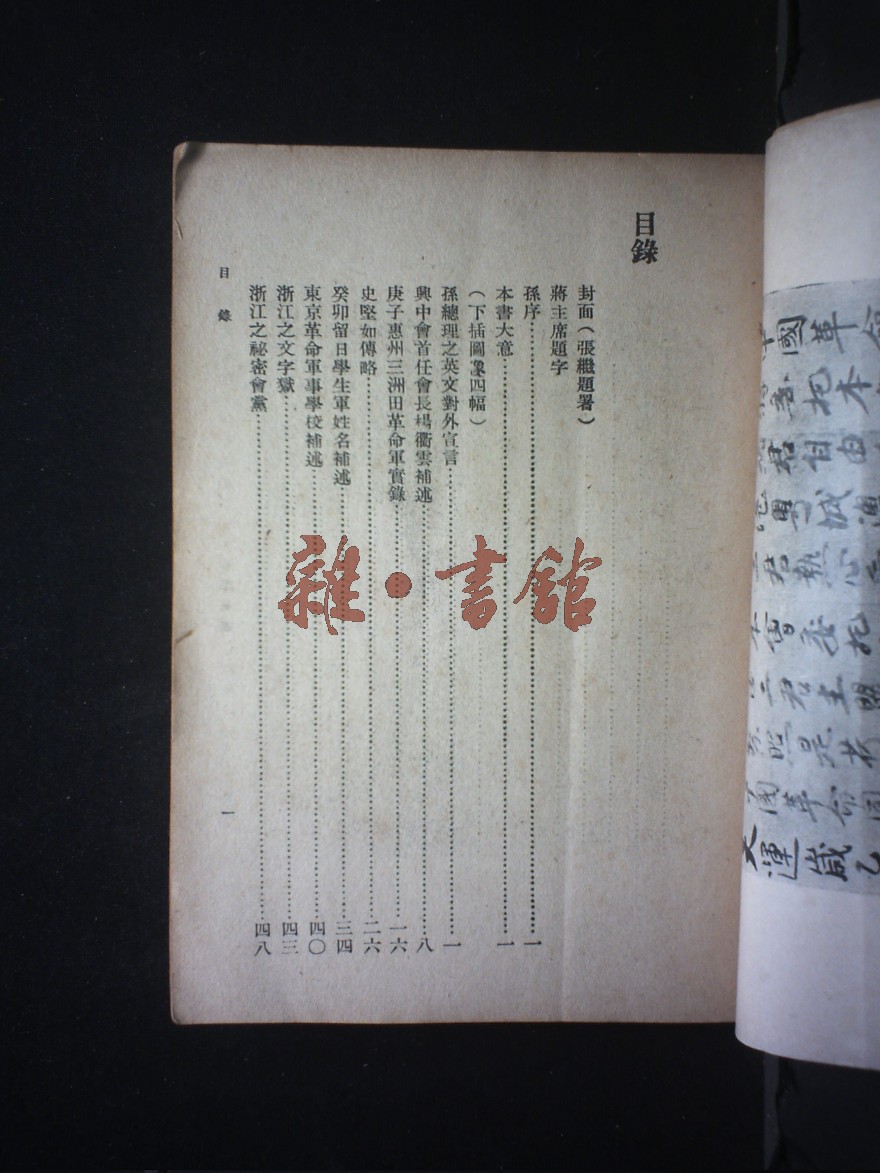 目錄
封面（張繼題署）
蔣主席題字
孫序………一
本書大意………一
（下插圖象四幅）
孫總理之英文對外宣言………一
興中會首任會長楊衢雲補述………八
庚子惠州三洲田革命軍實錄………一六
史堅如傳略………二六
癸卯留日學生軍姓名補述………三四
東京革命軍事學校補述………四〇
浙江之文字獄………四三
浙江之祕密會黨………四八
目錄
一
雜·書館